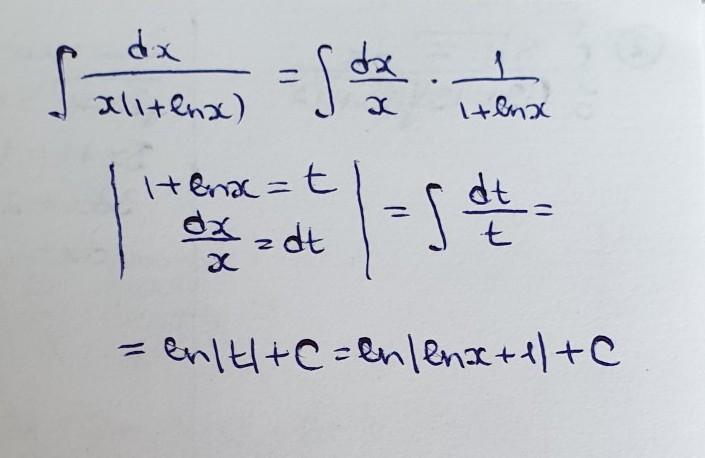 ∫ dx/(x(1+lnx)) = ∫ dx/x · 1/(1+lnx)
| 1+lnx = t
dx/x = dt | = ∫ dt/t =
= ln|t|+C = ln|lnx+1|+C